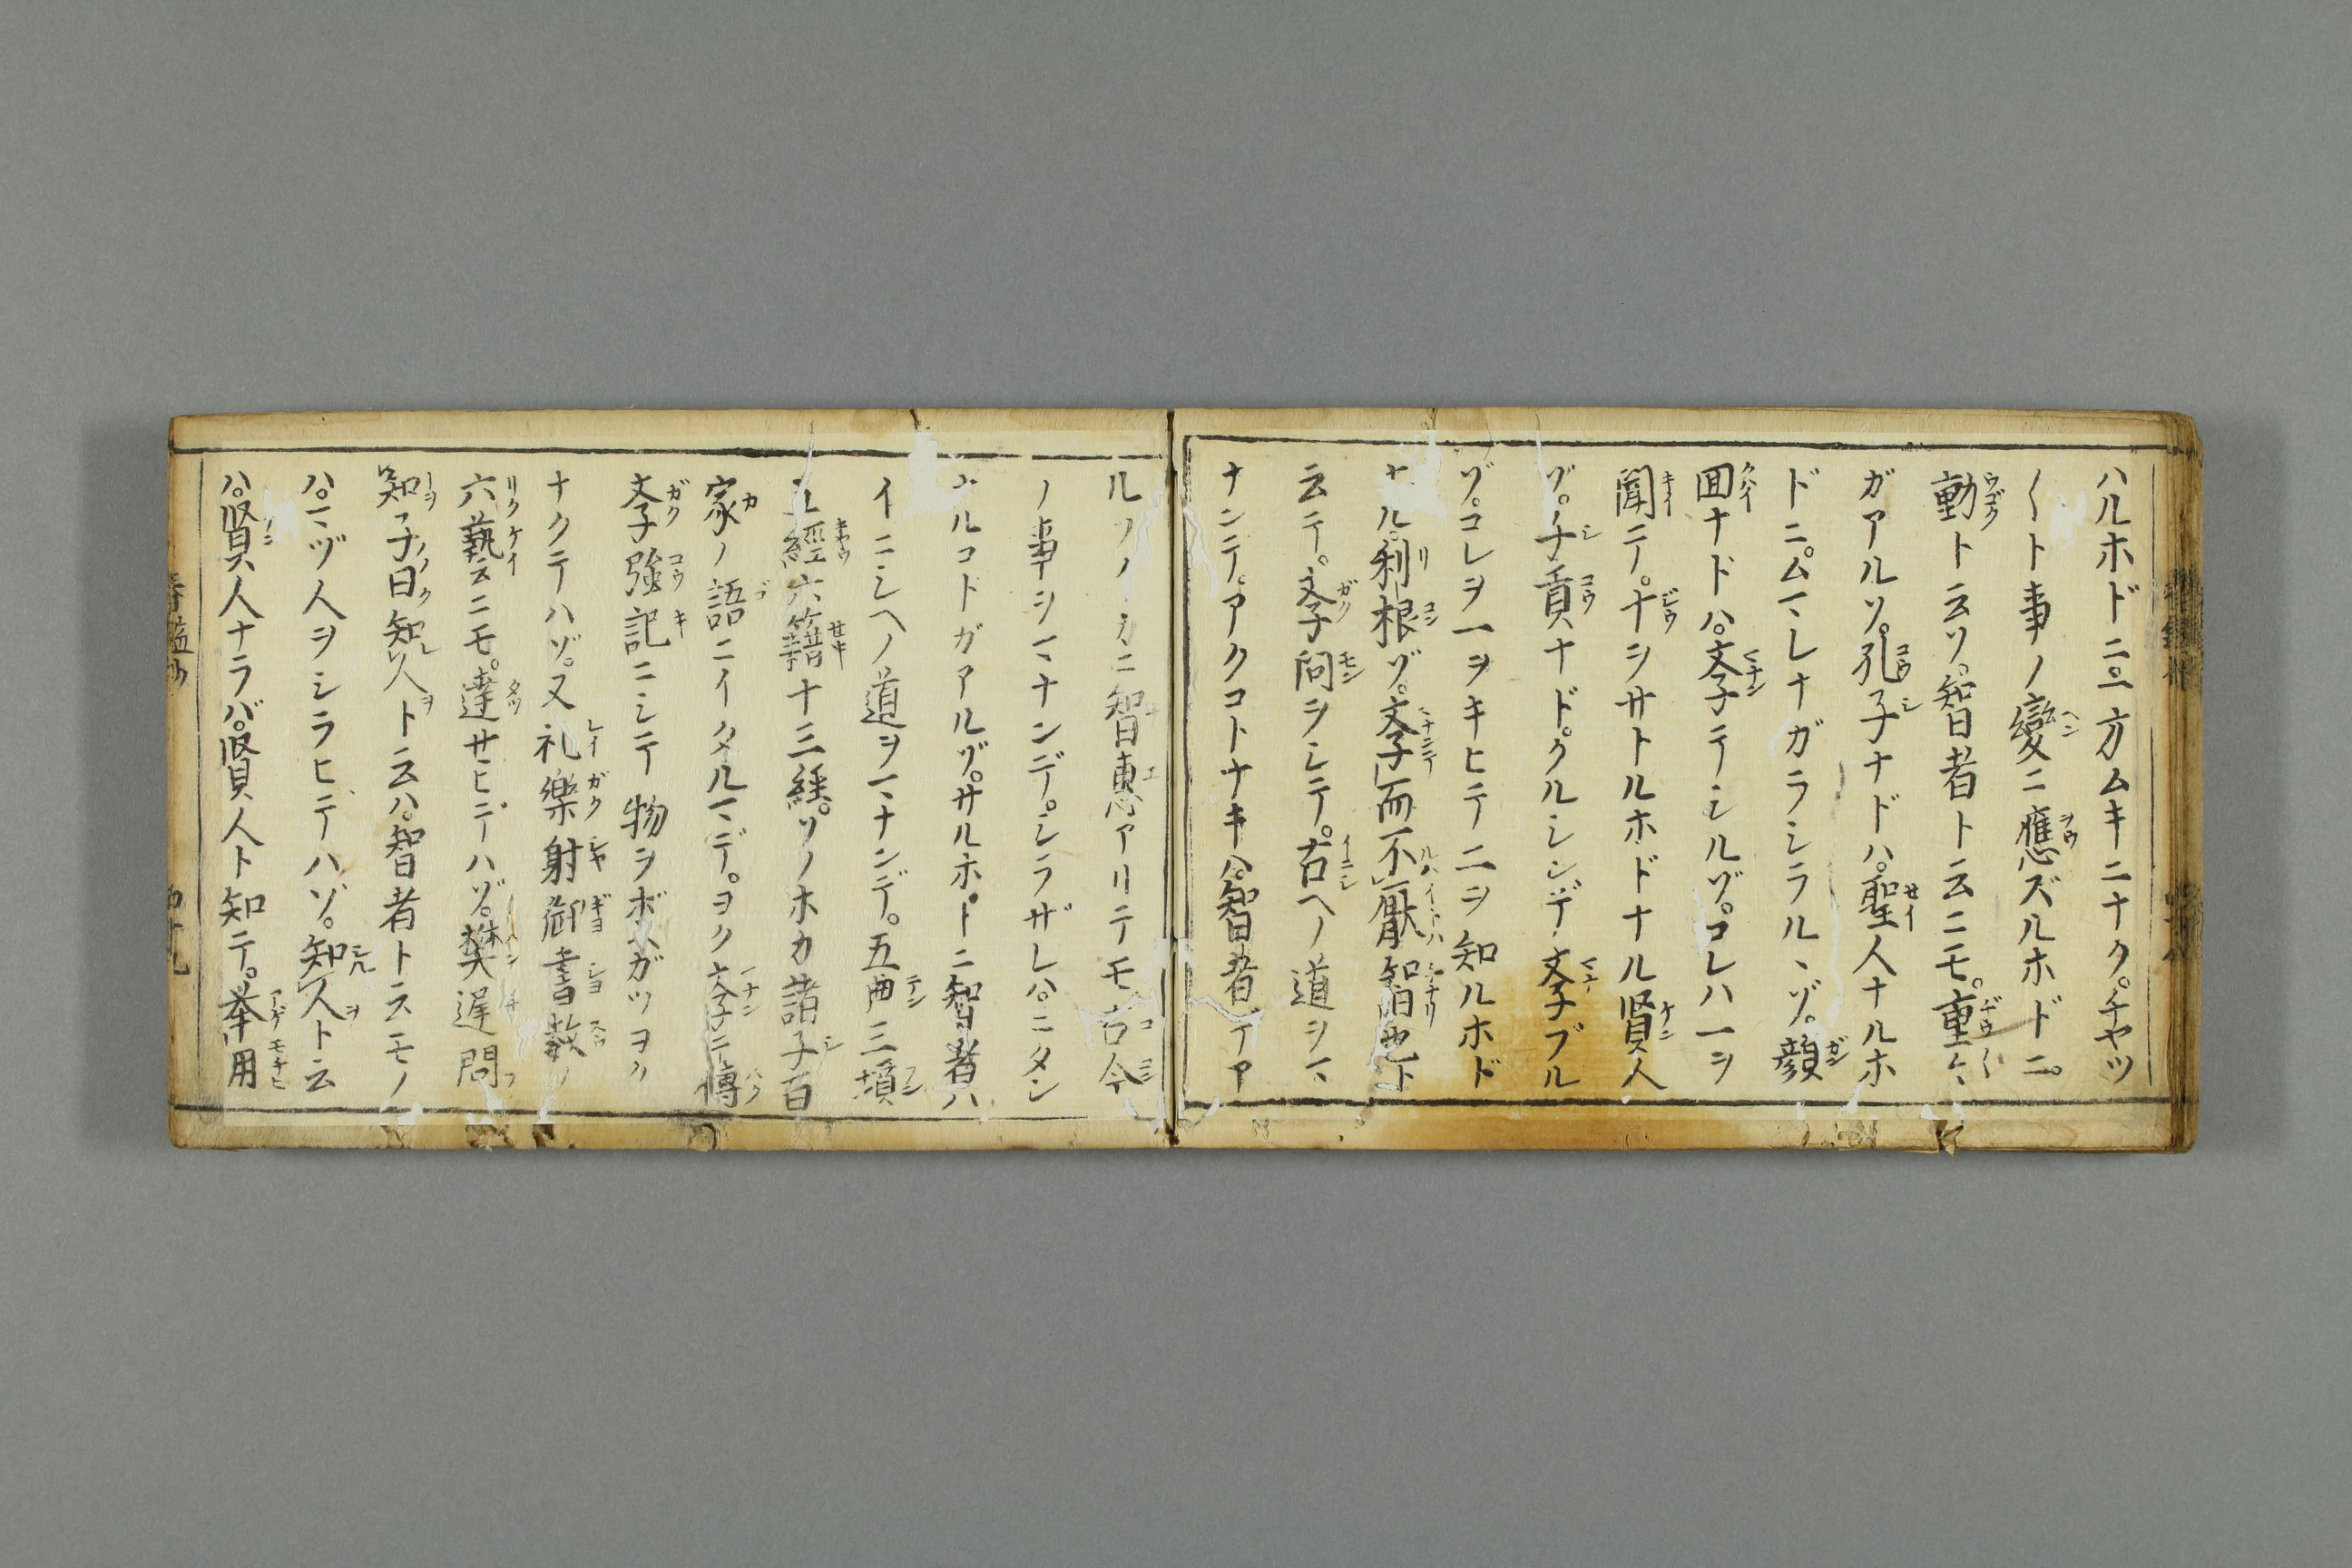 ハルホドニ。一方ムキニナク。チヤツ
〱ト事ノ變ニ應ズルホドニ。
動ト云ソ。智者ト云ニモ。重々
ガアルソ。孔子ナドハ。聖人ナルホ
ドニ。ムマレナガラシラルヽゾ。顔
回ナドハ。斈テシルゾ。コレハ一ヲ
聞テ。十ヲサトルホドナル賢人
ゾ。子貢ナド。クルシンデ斈ブル
ゾ。コレヲ一ヲキヒテ二ヲ知ルホド
ナル利根ゾ。斈而不厭智也ト
云テ。斈問ヲシテ。古ヘノ道ヲマ
ナンテ。アクコトナキハ。智者デア
ルソ 智惠アリテモ古今
ノ事ヲマナンデ。シラザレハ。ニタン
ルコトガアルゾ。サルホドニ智者ハ
イニシヘノ道ヲマナンデ。五典三墳
經六籍十三経。ソノホカ諸子百
家ノ語ニイタルマデ。ヨク斈ニ博
斈強記ニシテ物ヲボヘガツヨク
ナクテハゾ。又礼樂射御書数ノ
六藝ニモ。達せヒデハゾ。樊遲問
知子曰知人ト云ハ。智者ト云モノ
ハ。マヅ人ヲシラヒデハソ。知人ト云
ハ。賢人ナラバ。賢人ト知テ。挙用